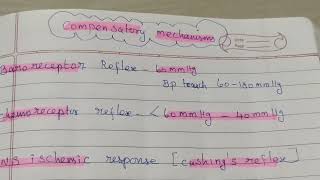 Compensatory mechanisms
Baroreceptor Reflex - 60mmHg
Bp touch 60-180mmHg
chemoreceptor reflex - < 60mmHg - 40mmHg
ischemic response [cushing's reflex]